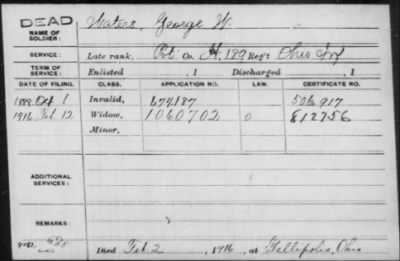 DEAD
NAME OF SOLDIER: Waters, George W.
SERVICE: Late rank, Pvt Co. H, 189 Reg't Ohio Inf
TERM OF SERVICE: Enlisted , 1 Discharged , 1
DATE OF FILING. CLASS. APPLICATION NO. LAW. CERTIFICATE NO.
1888 Oct 1 Invalid, 674187 506917
1916 Feb 12 Widow, 1060702 0 812756
Minor,
ADDITIONAL SERVICES:
REMARKS:
Died Feb 2, 1916, at Gallipolis, Ohio